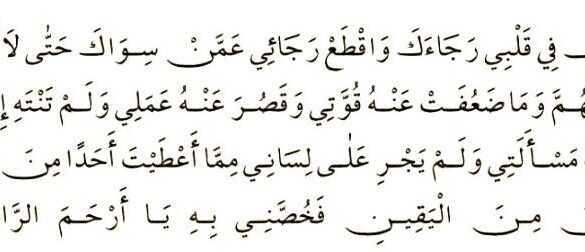 فِي قَلْبِي رَجَاءَكَ وَاقْطَعْ رَجَائِي عَمَّنْ سِوَاكَ حَتَّى لَا
وَمَا ضَعُفَتْ عَنْهُ قُوَّتِي وَقَصُرَ عَنْهُ عَمَلِي وَلَمْ تَنْتَهِ
مَسْأَلَتِي وَلَمْ يَجْرِ عَلَى لِسَانِي مِمَّا أَعْطَيْتَ أَحَدًا مِنَ
مِنَ الْيَقِينِ فَخُصَّنِي بِهِ يَا أَرْحَمَ